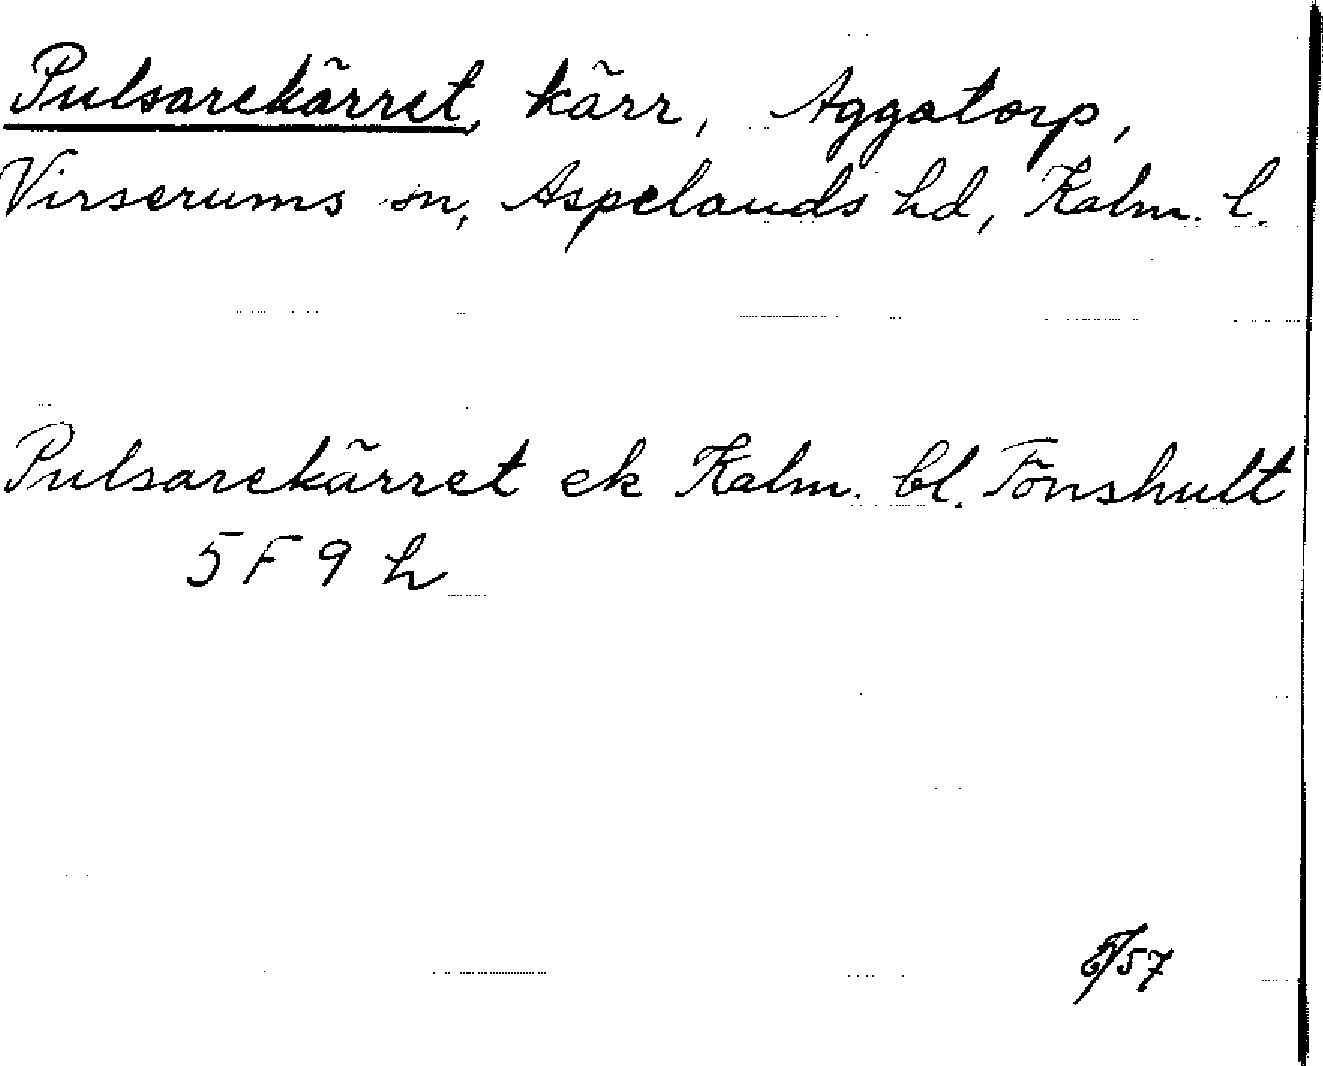 Pulsarekärret, kärr, Aggatorp,
Virserums sn, Aspelands hd, Kalm. l.
Pulsarekärret ek Kalm. bl. Fönshult
5 F 9 h
/57